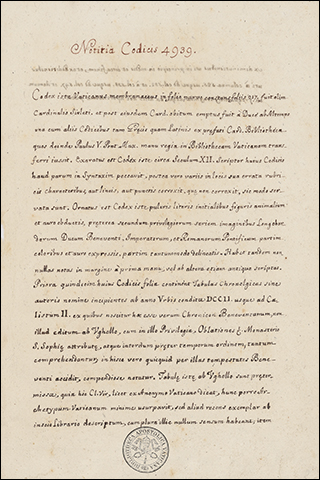 Notitia Codicis 4939.
Codex iste Vaticanus membranaceus in folio maiori constans foliis 217. fuit olim
Cardinalis Sirleti, et post eiusdem Card. obitum emptus fuit à Duce ab Altaemps
una cum aliis Codicibus tam Grecis quam Latinis ex prefati Card. Bibliotheca
quos deinde Paulus V. Pont. Max. manu regia in Bibliothecam Vaticanam trans
ferri iussit. Exaratus est Codex iste circa Seculum XII. Scriptor huius Codicis
haud parum in Syntaxim peccavit, postea vero variis in locis sua errata rubri
cis charactoribus, aut lineis, aut punctis correxit, que non correxit, sic mode ser
vata sunt. Ornatus est Codex iste pulcris literis initialibus figuris animalium
et auro obductis, preterea secundum privilegiorum seriem imaginibus Longobar
dorum Ducum Beneventi, Imperatorum, et Romanorum Pontificum partim
coloribus et auro expressis, partim tantummodo delineatis. Habet tandem non
nullas notas in margine à prima manu, sed ab altera etiam antiqua scriptas.
Priora quindecim huius Codicis folia continent Tabulas Chronologicas sines
auctoris nomine incipientes ab anno Urbis condite DCCII. usque ad Ca
listum II. ex quibus nascitur hac esse verum Chronicon Beneventanum, non
illud editum ab Ughello, cum in illo Privilegia, Oblationes Monasterio
S. Sophie attribute, atque interdum preter temporum ordinem, tantum
comprehendantur; in hisce vero quicquid per illas tempestates Bene
venti accidit, compendiose notatur. Tabule iste ab Ughello sunt preter
missae, quia hic Cl. Vir, licet ex Anonymo Vaticano dicat, hunc porro Ar
chetypum Vaticanum minimes usurpavit, sed aliud recens exemplar ab
inscio Librario descriptum, cum plura illic nullum sensum habeant, item
BIBLIOTHECA APOSTOLICA VATICANA